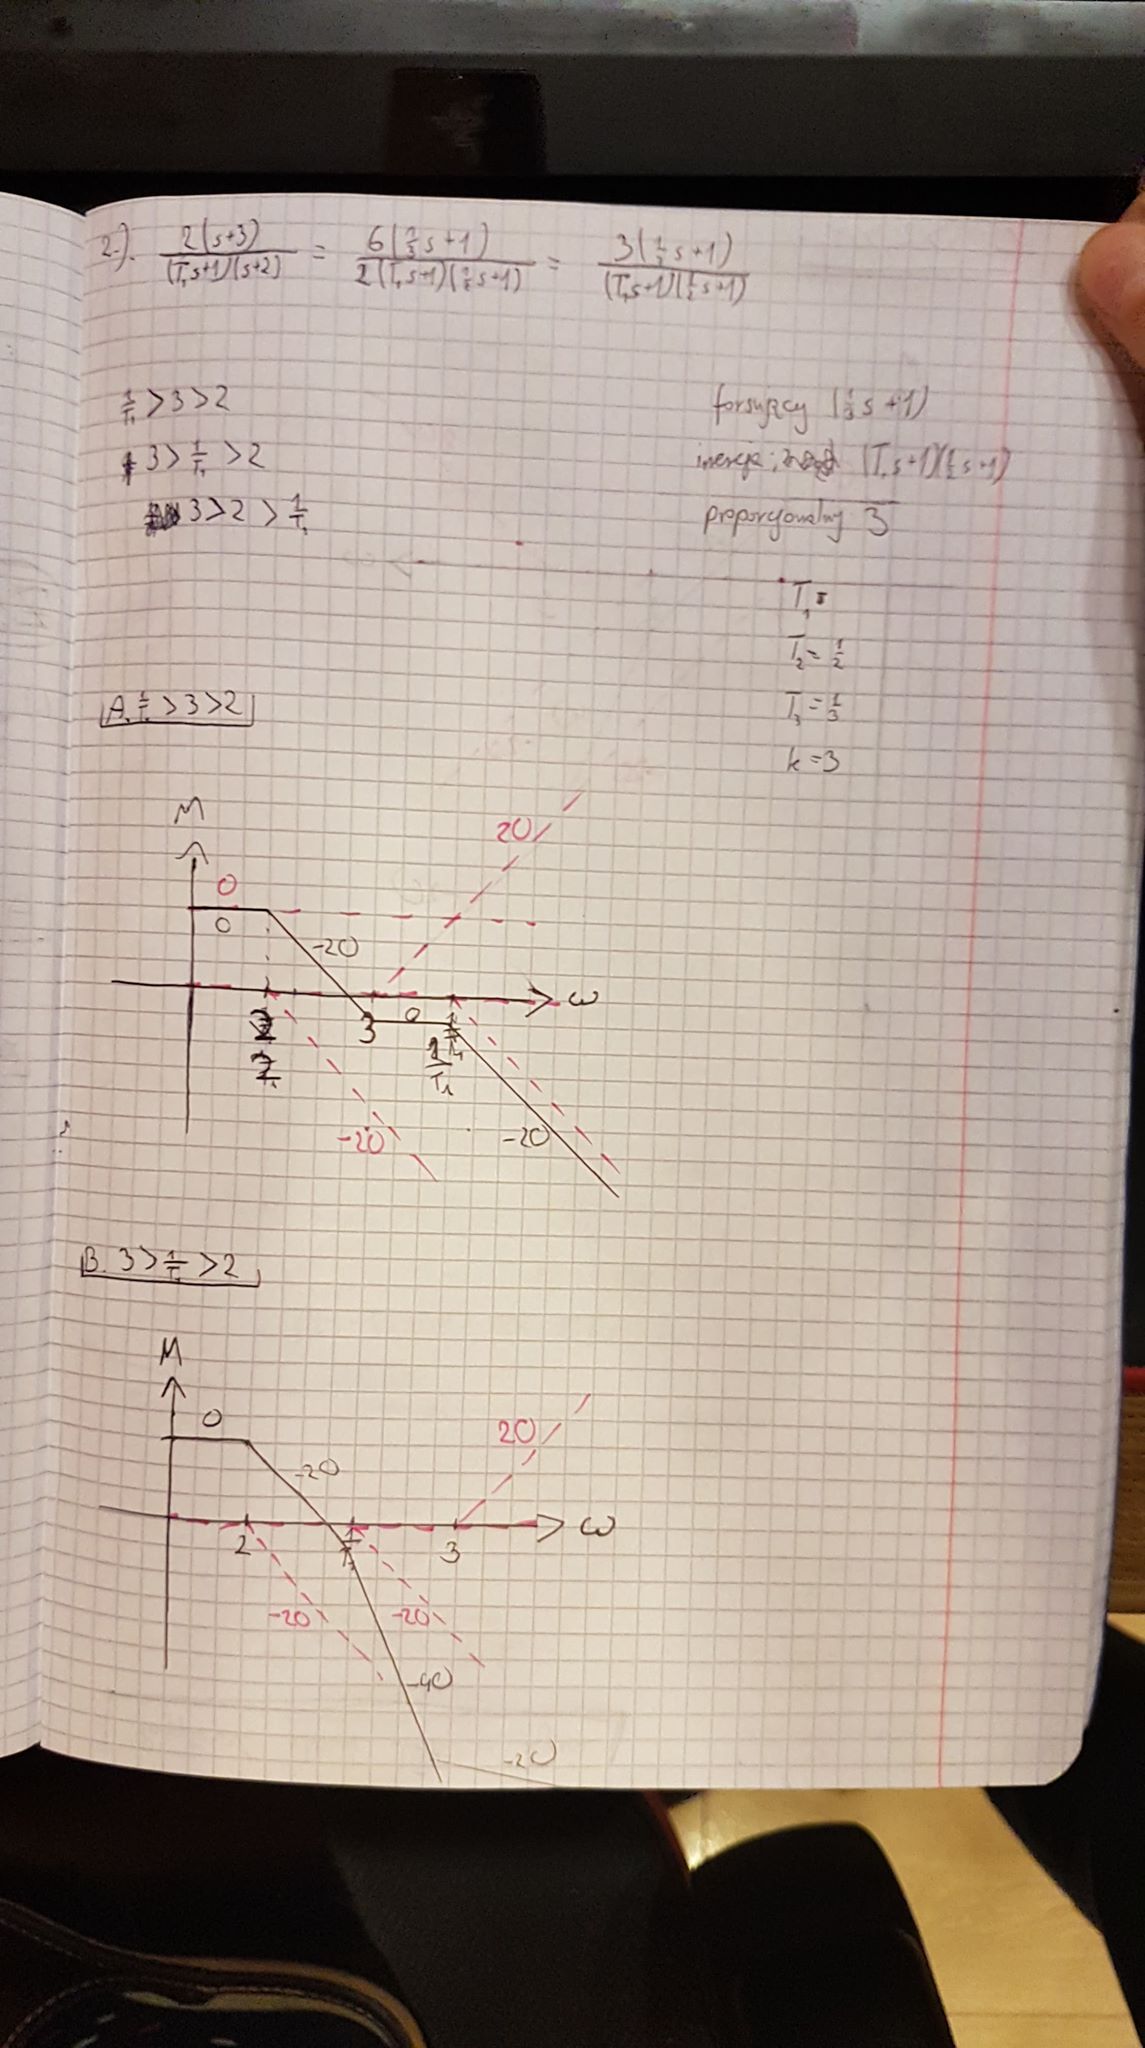 2.). 2(s+3)/(T₁s+1)(s+2) = 6(⅓s+1)/2(T₁s+1)(½s+1) = 3(⅓s+1)/(T₁s+1)(½s+1)
1/T₁ > 3 > 2
forsujący (⅓s+1)
3 > 1/T₁ > 2
inercje (T₁s+1)(½s+1)
3 > 2 > 1/T₁
proporcjonalny 3
T₁=
T₂ = ½
T₃ = ⅓
k = 3
A. 1/T₁ > 3 > 2
M
20
0
0
-20
ω
3
0
1/T₁
-20
-20
B. 3 > 1/T₁ > 2
M
0
20
-20
ω
2
1/T₁
3
-20
-20
-40
-20